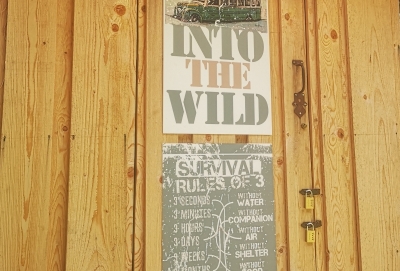 INTO
THE
WILD
SURVIVAL
RULES OF 3
3 SECONDS WITHOUT WATER
3 MINUTES WITHOUT COMPANION
3 HOURS WITHOUT AIR
3 DAYS WITHOUT SHELTER
3 WEEKS WITHOUT
MONTHS